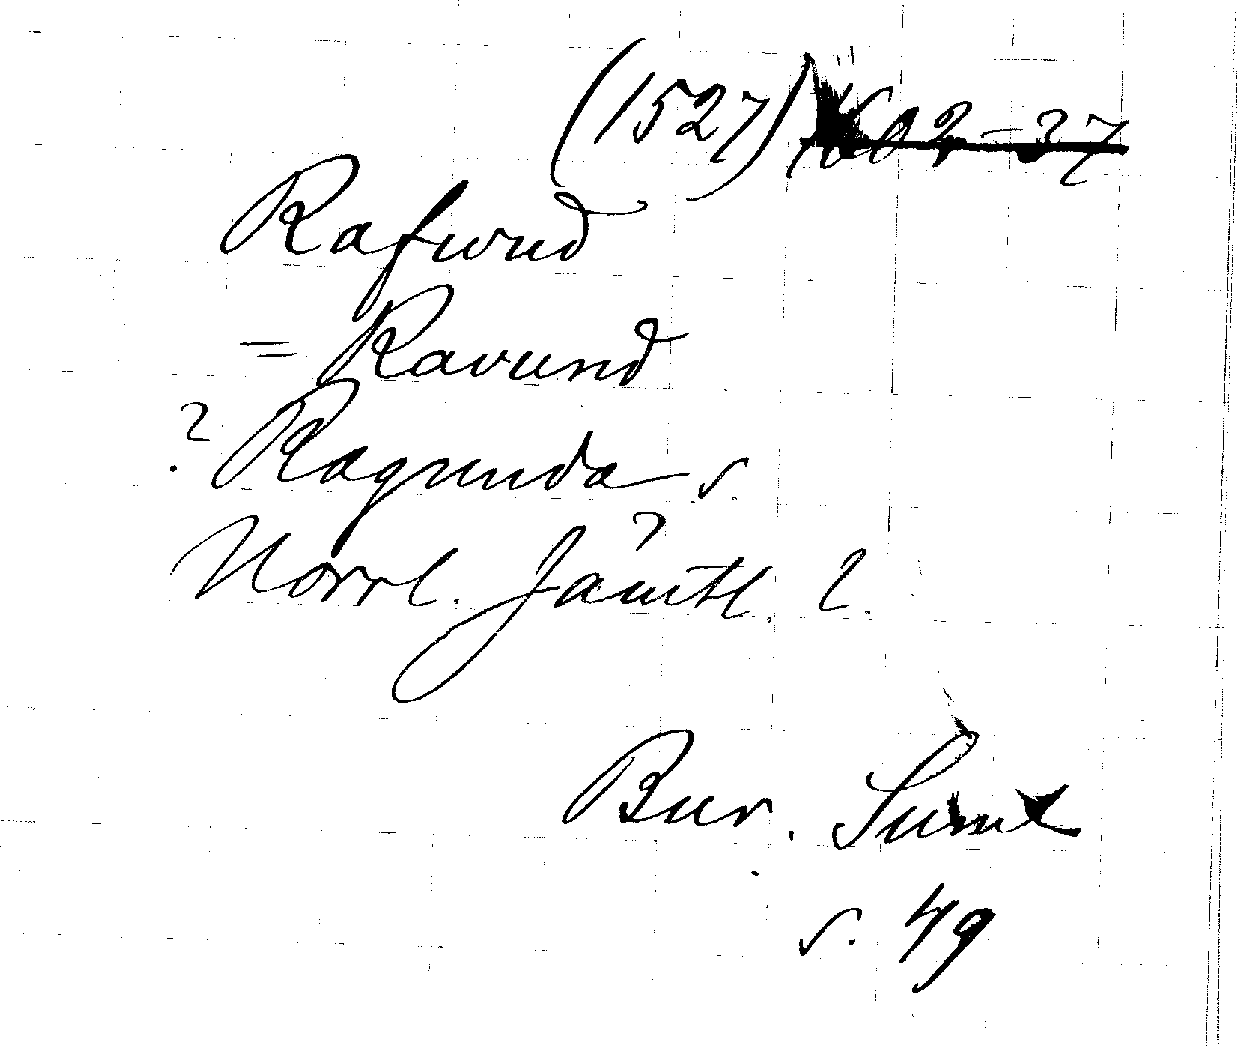 (1527) 1602-37
Rafwnd
= Ravund
? Ragunda s.
Norrl. Jämtl. ?
Bur. Suml
s. 49